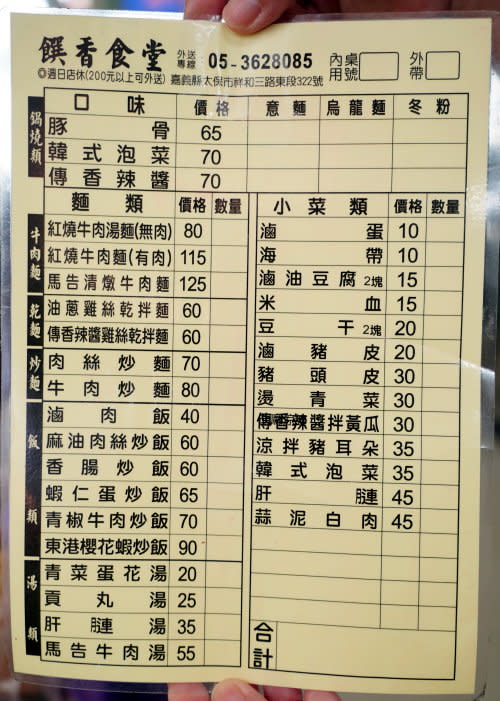 饌香食堂 外送專線 05-3628085 內用 桌號 外帶
◎週日店休(200元以上可外送) 嘉義縣太保市祥和三路東段322號
鍋燒類
口味 價格 意麵 烏龍麵 冬粉
豚骨 65
韓式泡菜 70
傳香辣醬 70
麵類 價格 數量
牛肉麵
紅燒牛肉湯麵(無肉) 80
紅燒牛肉麵(有肉) 115
馬告清燉牛肉麵 125
乾麵
油蔥雞絲乾拌麵 60
傳香辣醬雞絲乾拌麵 60
炒麵
肉絲炒麵 70
牛肉炒麵 80
飯類
滷肉飯 40
麻油肉絲炒飯 60
香腸炒飯 60
蝦仁蛋炒飯 65
青椒牛肉炒飯 70
東港櫻花蝦炒飯 90
湯類
青菜蛋花湯 20
貢丸湯 25
肝膁湯 35
馬告牛肉湯 55
小菜類 價格 數量
滷蛋 10
海帶 10
滷油豆腐 2塊 15
米血 15
豆干 2塊 20
滷豬皮 20
豬頭皮 30
燙青菜 30
傳香辣醬拌黃瓜 30
涼拌豬耳朵 35
韓式泡菜 35
肝膁 45
蒜泥白肉 45
合計